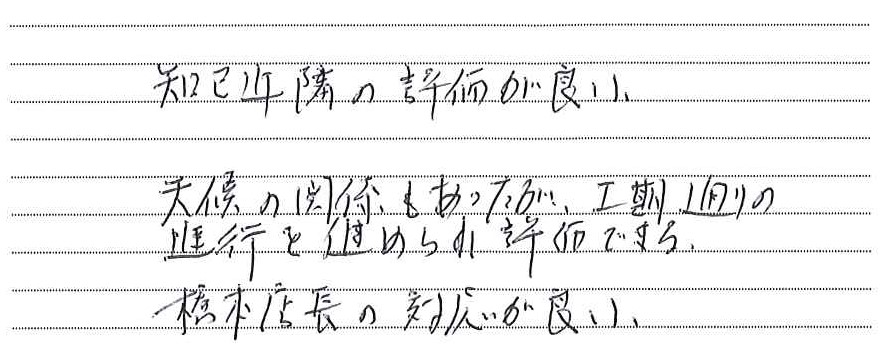 知己近隣の評価が良い、
天候の関係もあったが、工期通りの
進行を進められ評価できる、
橋本店長の対応が良い、